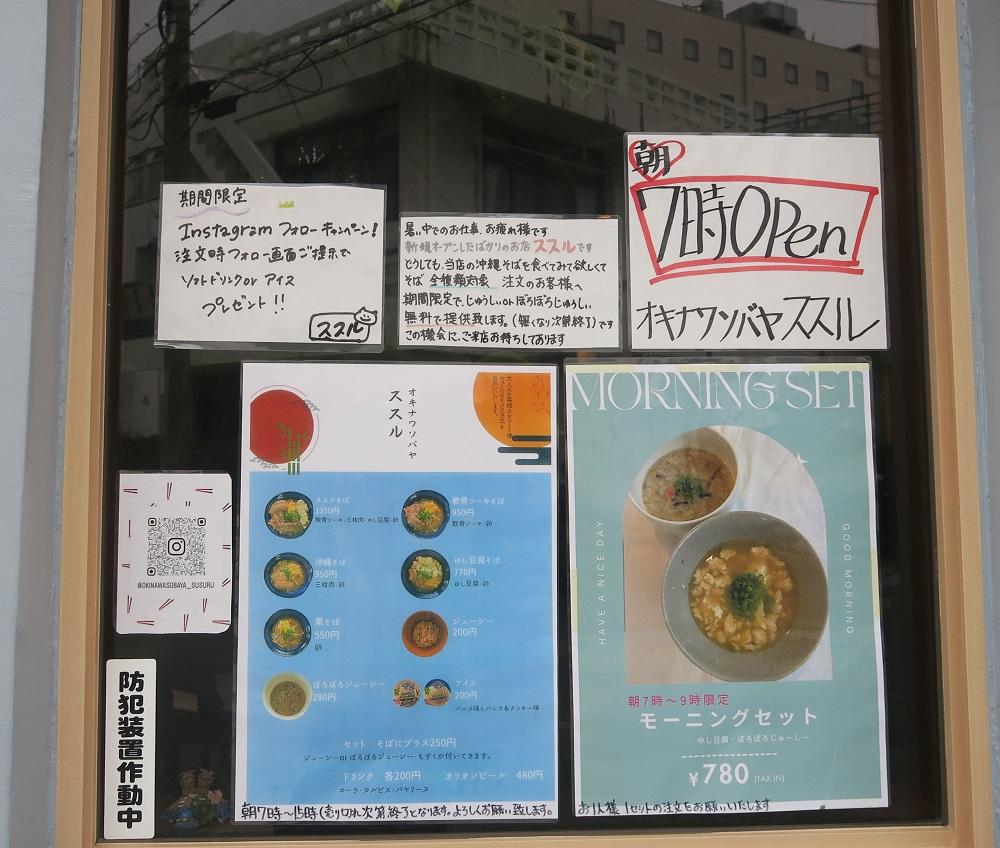 期間限定
Instagram フォローキャンペーン!
注文時フォロー画面ご提示で
ソフトドリンクor アイス
プレゼント!!
ススル
暑い中でのお仕事、お疲れ様です
新規オープンしたばかりのお店 ススルです
どうしても、当店の沖縄そばを食べてみて欲しくて
そば 全種類対象 注文のお客様へ
期間限定で、じゅうしぃorぼろぼろじゅうしぃ
無料で提供致します。(無くなり次第終了)です
この機会に、ご来店お待ちしております
朝
7時OPen
オキナワソバヤススル
オキナワソバヤ
ススル
ススルそば
1350円
軟骨ソーキ・三枚肉・ゆし豆腐・卵
軟骨ソーキそば
950円
軟骨ソーキ・卵
沖縄そば
950円
三枚肉・卵
ゆし豆腐そば
770円
ゆし豆腐・卵
素そば
550円
卵
ジューシー
200円
ぼろぼろジューシー
280円
アイス
200円
バニラ味とバニラ&クッキー味
セット そばにプラス250円
ジューシーor ぼろぼろジューシー・もずくが付いてきます。
ドリンク 各200円 オリオンビール 480円
コーラ・カルピス・バヤリース
朝7時〜15時(売り切れ次第終了となります。よろしくお願い致します。
MORNING SET
HAVE A NICE DAY
GOOD MORNING
朝7時〜9時限定
モーニングセット
ゆし豆腐・ぼろぼろじゅーしー
¥780 (TAX IN)
お1人様 1セットの注文をお願いいたします
@OKINAWASOBAYA_SUSURU
防犯装置作動中